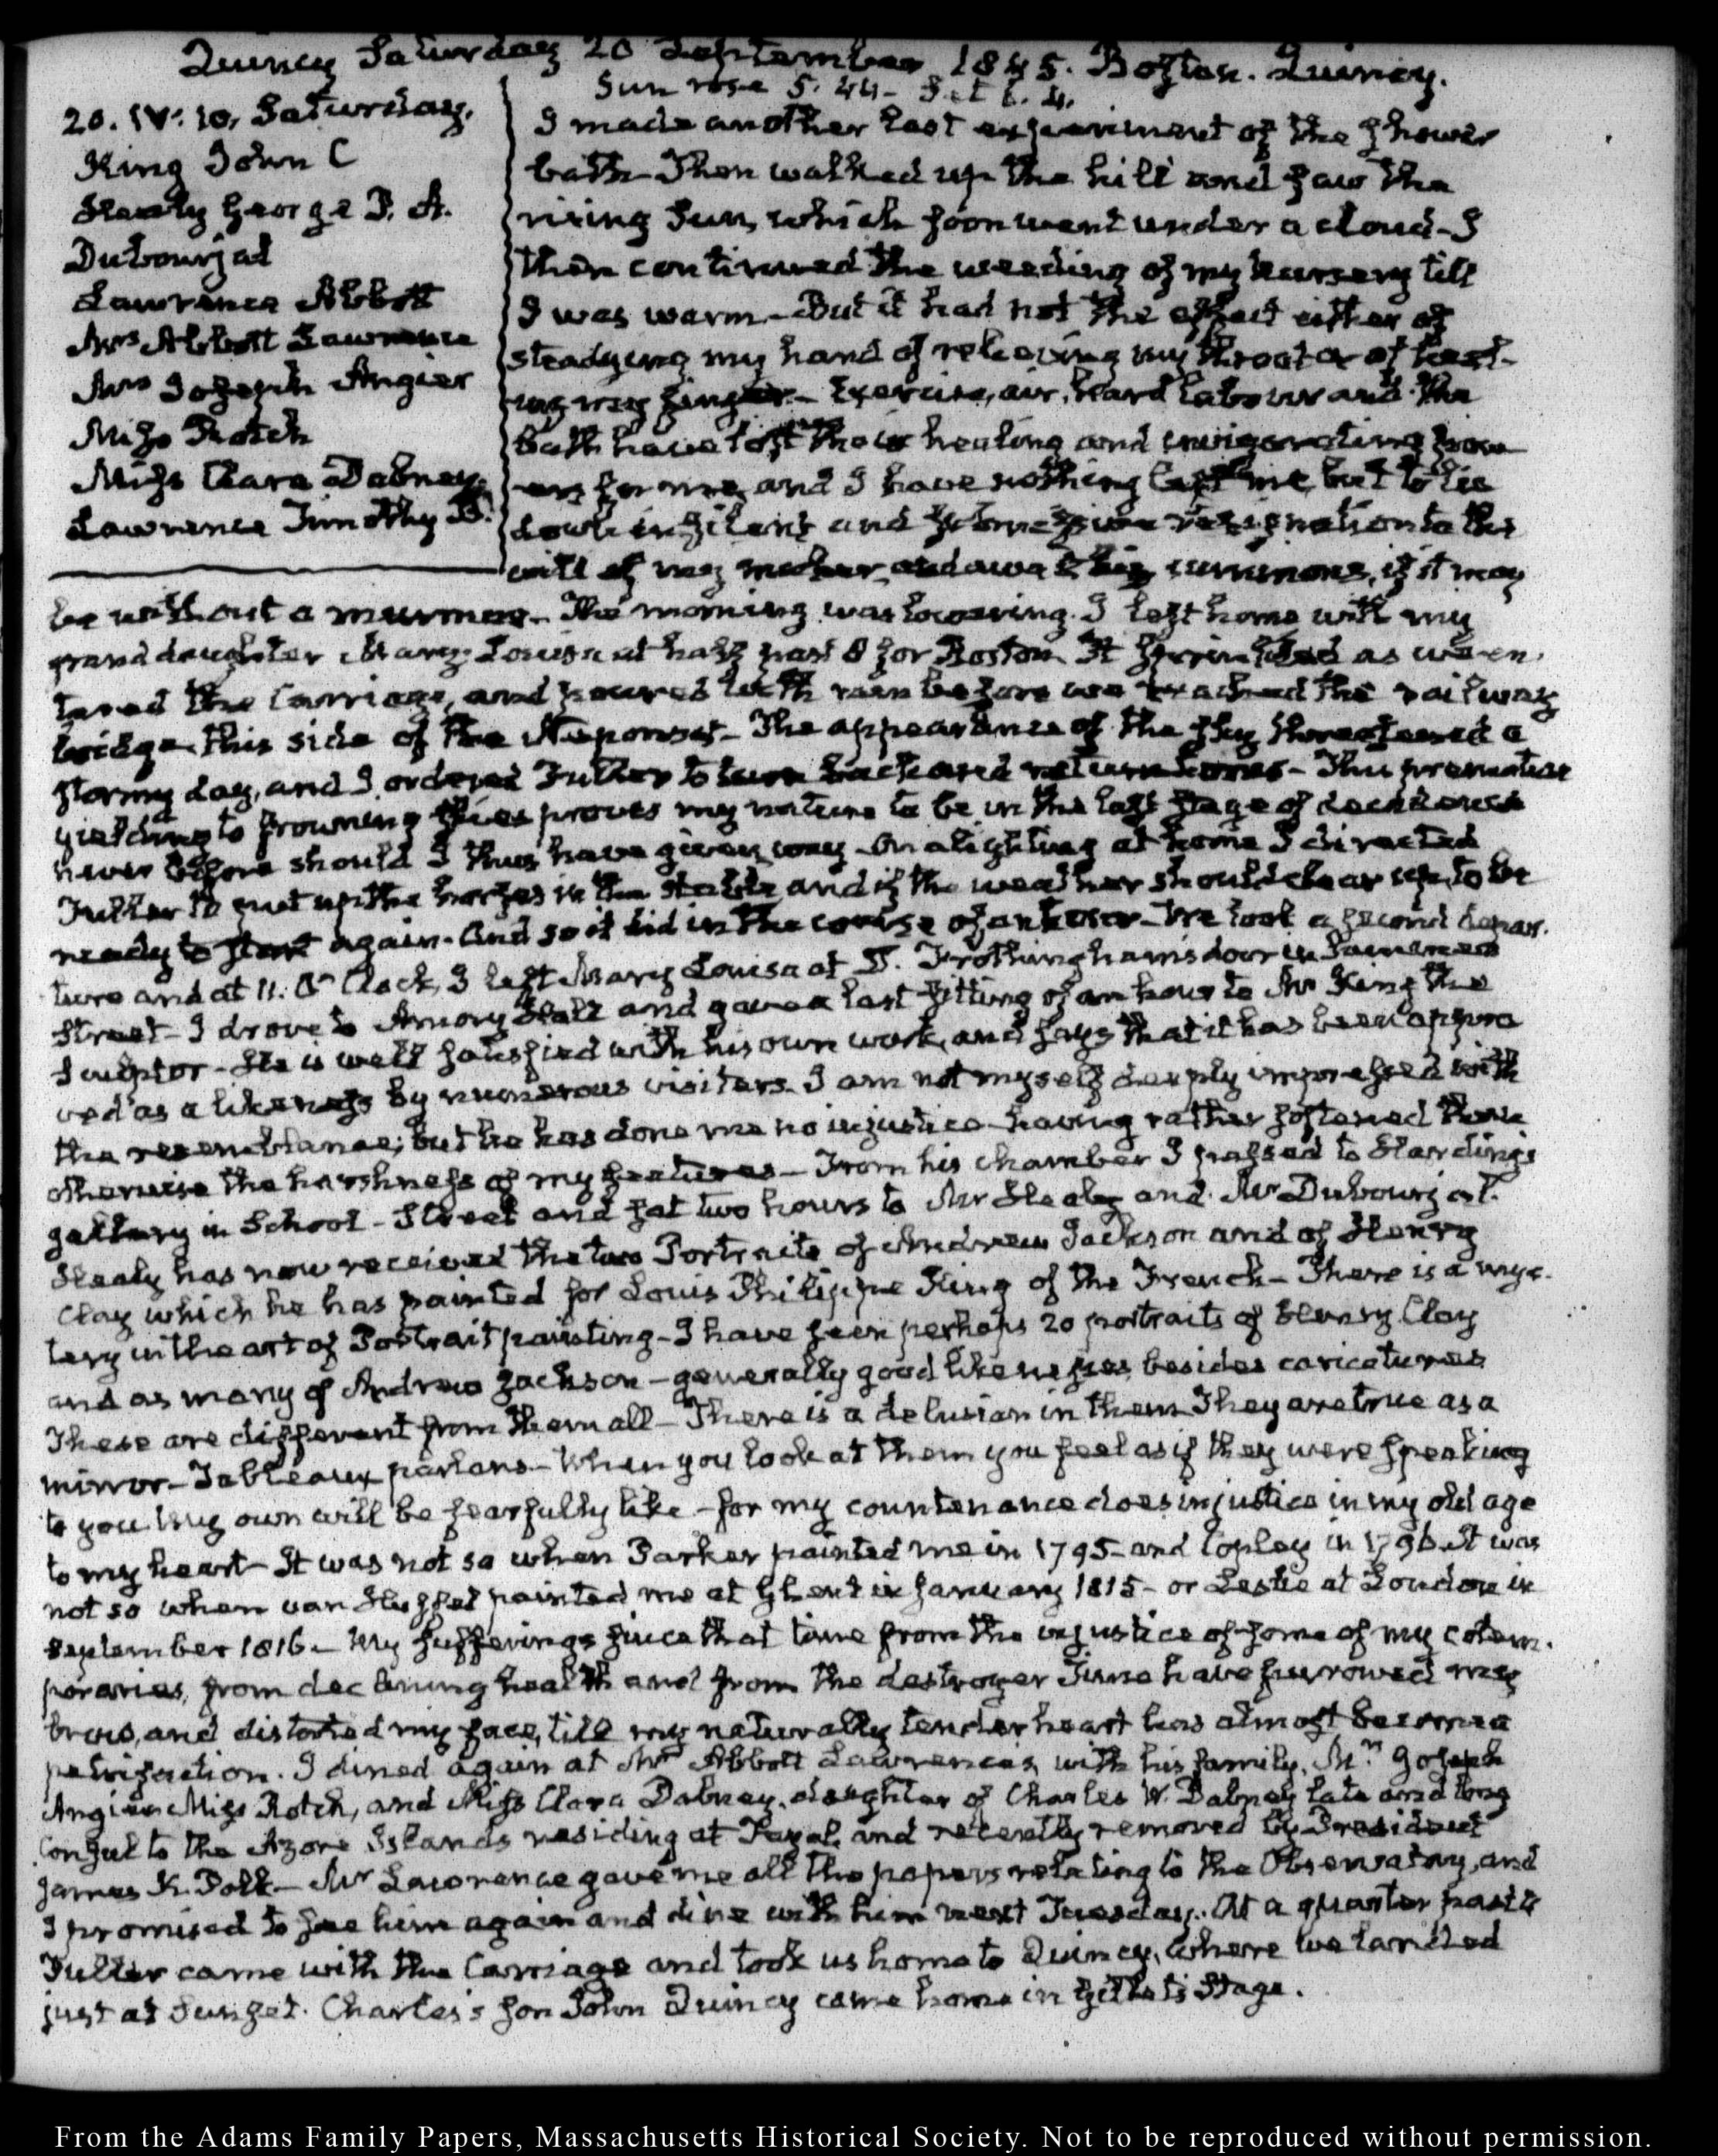 Quincy Saturday 20 September 1845. Boston. Quincy.
Sun rose 5. 44 - Set 6. 4.
20. IV: 10. Saturday.
King John C
Healy George P. A.
Dubourjal
Lawrence Abbott
Mrs Abbott Lawrence
Mrs Joseph Angier
Miss Rotch
Miss Clara Dabney.
Lawrence Timothy B.
I made another last experiment of the shower
bath - Then walked up the hill and saw the
rising Sun, which soon went under a cloud - I
then continued the weeding of my nursery till
I was warm - But it had not the effect either of
steadying my hand of relieving my throat or of heal-
ing my finger. - Exercise, air, hard labour and the
bath have lost their healing and invigorating pow-
ers for me, and I have nothing left me, but to lie
down in silent and submissive resignation to the
will of my maker, and await his summons, if it may
be without a murmur - The morning was lowering. I left home with my
granddaughter Mary-Louisa at half past 8 for Boston. It sprinkled as we en-
tered the Carriage, and poured with rain before we reached the railway
bridge this side of the Neponset - The appearance of the sky threatened a
stormy day, and I ordered Fuller to turn back and return home - This premature
yielding to frowning skies proves my nature to be in the last stage of decadence
never before should I thus have given way - On alighting at home I directed
Fuller to put up the horses in the stable and if the weather should clear up, to be
ready to start again. And so it did in the course of an hour - We took a second depar-
ture and at 11. O'Clock, I left Mary Louisa at Frothingham's door in Summer
Street - I drove to Amory Hall and gave a last sitting of an hour to Mr King the
Sculptor - He is well satisfied with his own work, and says that it has been appro
ved as a likeness by numerous visiters. I am not myself deeply impressed with
the resemblance; but he has done me no injustice having rather softened than
otherwise the harshness of my features - From his chamber I passed to Harding's
gallery in School-Street and sat two hours to Mr Healy and Mr Dubourjal.
Healy has now received the two Portraits of Andrew Jackson and of Henry
Clay which he has painted for Louis Philippe King of the French - There is a mys-
tery in the art of Portrait painting - I have seen perhaps 20 portraits of Henry Clay
and as many of Andrew Jackson - generally good likenesses, besides caricatures
These are different from them all - There is a delusion in them They are true as a
mirror - Tableaux parlans - When you look at them you feel as if they were speaking
to you My own will be fearfully like - for my countenance does injustice in my old age
to my heart - It was not so when Parker painted me in 1795 - and Copley in 1796. It was
not so when van Huffel painted me at Ghent in January 1815 - or Leslie at London in
September 1816 - My sufferings since that time from the injustice of some of my cotem-
poraries, from declining health and from the destroyer Time have furrowed my
brow, and distorted my face, till my naturally tender heart has almost become a
petrifaction. I dined again at Mr Abbott Lawrence's, with his family, Mrs Joseph
Angier Miss Rotch, and Miss Clara Dabney, daughter of Charles W. Dabney late and long
Consul to the Azore Islands residing at Fayal, and recently removed by President
James K. Polk - Mr Lawrence gave me all the papers relating to the Observatory, and
I promised to see him again and dine with him next Tuesday. At a quarter past 4
Fuller came with the Carriage and took us home to Quincy, where we landed
just at Sunset. Charles's son John Quincy came home in Gillett's Stage.
From the Adams Family Papers, Massachusetts Historical Society. Not to be reproduced without permission.